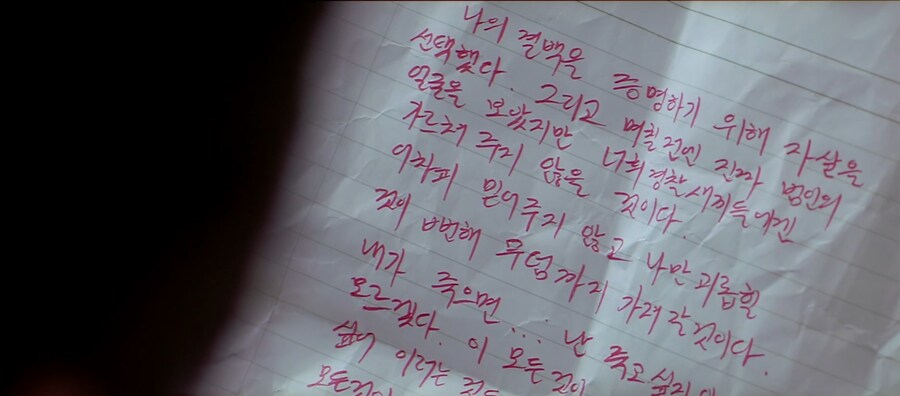 나의 결백을 증명하기 위해 자살을
선택했다. 그리고 며칠전엔 진짜 범인의
얼굴을 보았지만 너희 경찰새끼들에겐
가르쳐 주지 않을 것이다.
어차피 믿어주지 않고 나만 괴롭힐
것이 뻔해 무덤까지 가져 갈것이다.
내가 죽으면... 난 죽고 싶지
모르겠다. 이 모든 것이
싶어 이러는